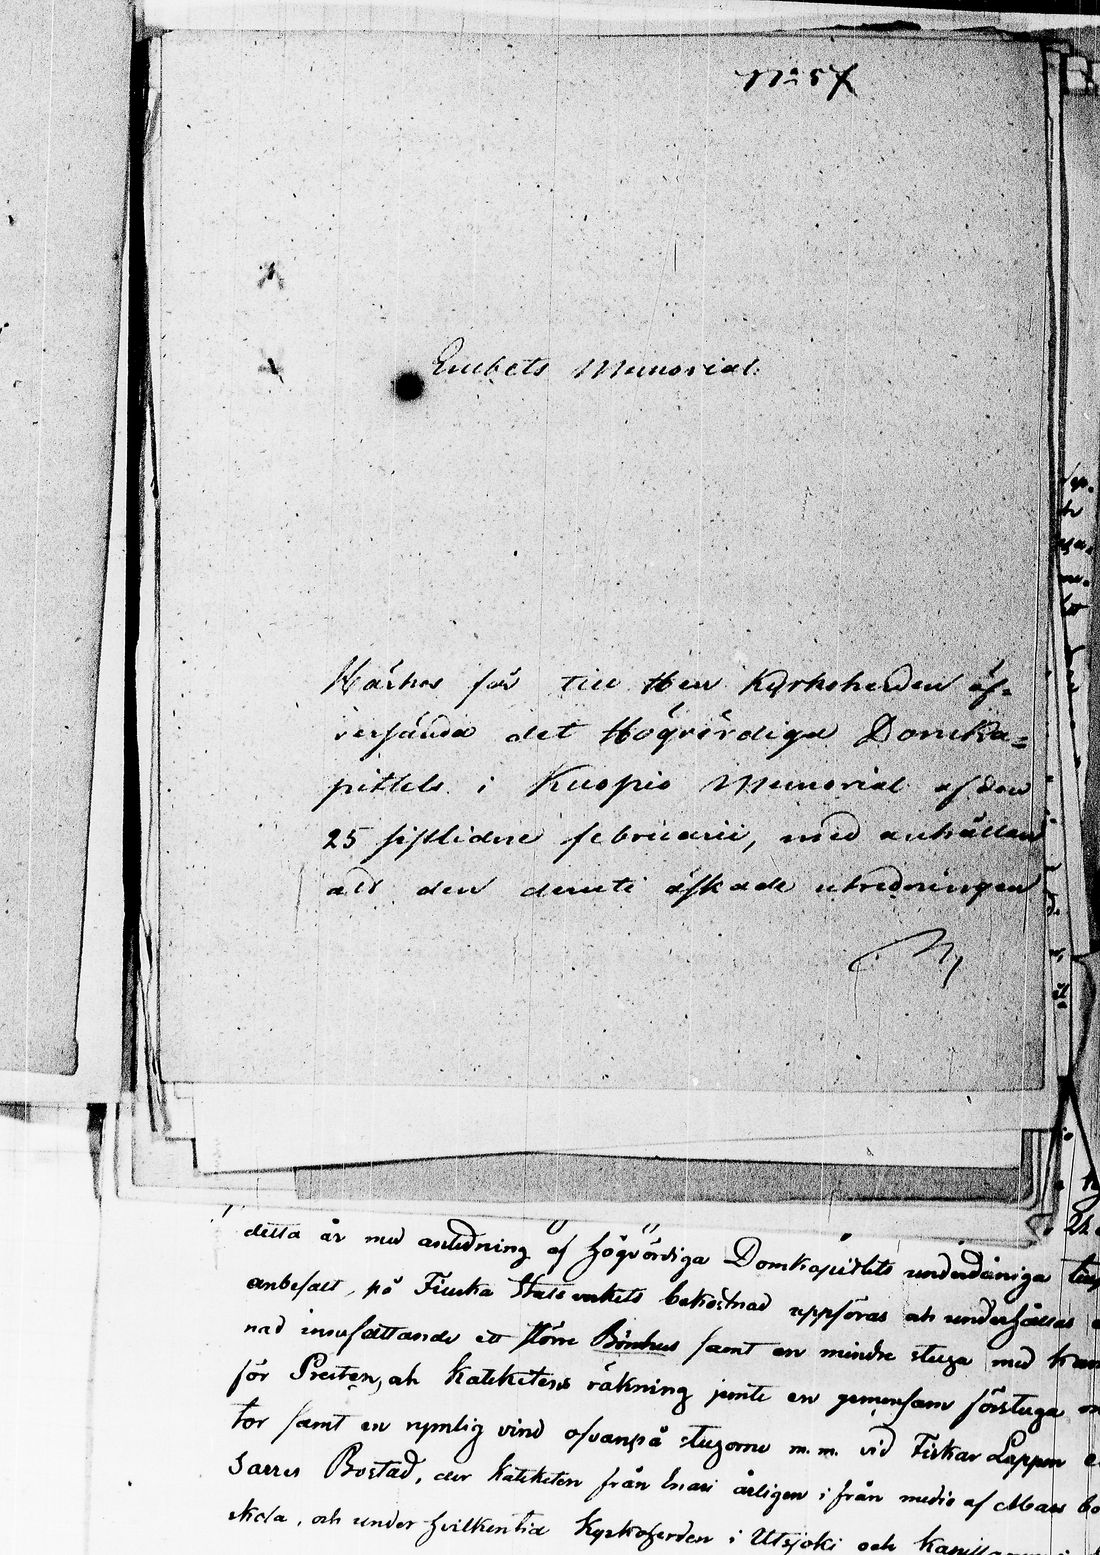 No 57
Embets Memorial
Härhos får till Herr Kyrkoherden öf-
versända det Högvördiga Domka-
pittels i Kuopio Memorial af den
25 sistlidne februarii, med anhållan
att den deruti äskade utredningen
detta år med anledning af Högvördiga Domkapitlets underdåniga
anbefalt, på Finska Statsverkets bekostnad uppföras och underhållas
nad innefattande ett större Bönehus samt en mindre stuga med
för Presten, och Kateketens räkning jemte en gemensam förstuga
tor samt en rymlig vind ofvanpå stugorne m.m. vid Fiskar Lappen
Sarres Bostad, der Kateketen från Enari årligen ifrån medio af Mars
skola, och under hvilken tid Kyrkoherden i Utsjoki och